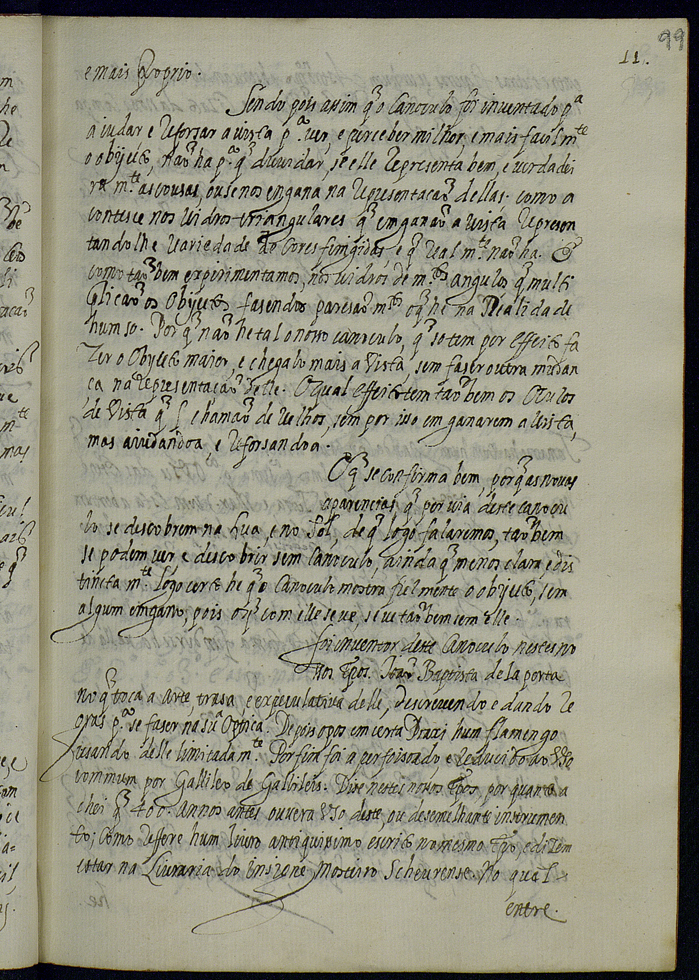 99
11.
e mais Proprio.
Sendo pois assim q̃ o Canoculo foi inventado p.ª
aiudar e reforsar a vista p.ª ver, e perceber milhor, e mais facilm.te
o objeycto, naõ ha p.ª q̃ duuidar, se elle representa bem, e uerdadei
ra m.te as cousas, ou se nos engana na representacaõ dellas. como a
contesce nos uidros triangulares q̃ emganaõ a uista represen
tandolhe uariedade de Cores fingidas e q̃ realm.te naõ ha. E
como taõbem experimentamos, nos uidros de m.tos angulos q̃ multi
plicaõ os Objectos fasendo pareser m.tos o q̃ he na Realidade
hum so. Por q̃ naõ he tal o nosso canoculo, q̃ so tem por effeito fa
zer o Obyecto maior, e chegalo mais a Vista, sem faser outra mudan
ca na representacaõ delle. O qual effeito tem taõbem os Oculos
de Vista q̃ chamaõ de uelhos, sem por isso em ganarem a Uista,
mas aiudandoa, e reforsandoa.
O q̃ se confirma bem, porq̃ as nouas
aparencias q̃ por uia deste canocu
lo se descobrem na Lua, e no Sol, de q̃ logo falaremos, taõbem
se podem uer e descobrir sem Canoculo, ainda q̃ menos clara, e dis
tincta m.te Logo certo he q̃ o Canoculo mostra fielmente o obyecto, sem
algum emgano, pois o q̃ com elle se ue, se ue taõbem sem elle.
foi inventor deste Canoculo nestes no
uos tpos. Joaõ Baptista de la porta
no q̃ toca a arte, trasa, e expeculatiua delle, descreuendo e dando re
gras p.ª se faser na sua Optica. Depois o pos em certa Praxi hum flamengo
usando delle limitadam.te Por fim foi aperfeisoado, e reducido ao Uso
commum por Gallileo de Gallileis. Dixe nestes nouos tpos, por quanto a
chei q̃ 400. annos antes ouuera Uso deste, ou desemelhante instrumen
to, como reffere hum liuro antiquissimo escrito no mesmo tpo, e dizem
estar na Liuraria do insigne Mosteiro Scheurense. No qual
entre.